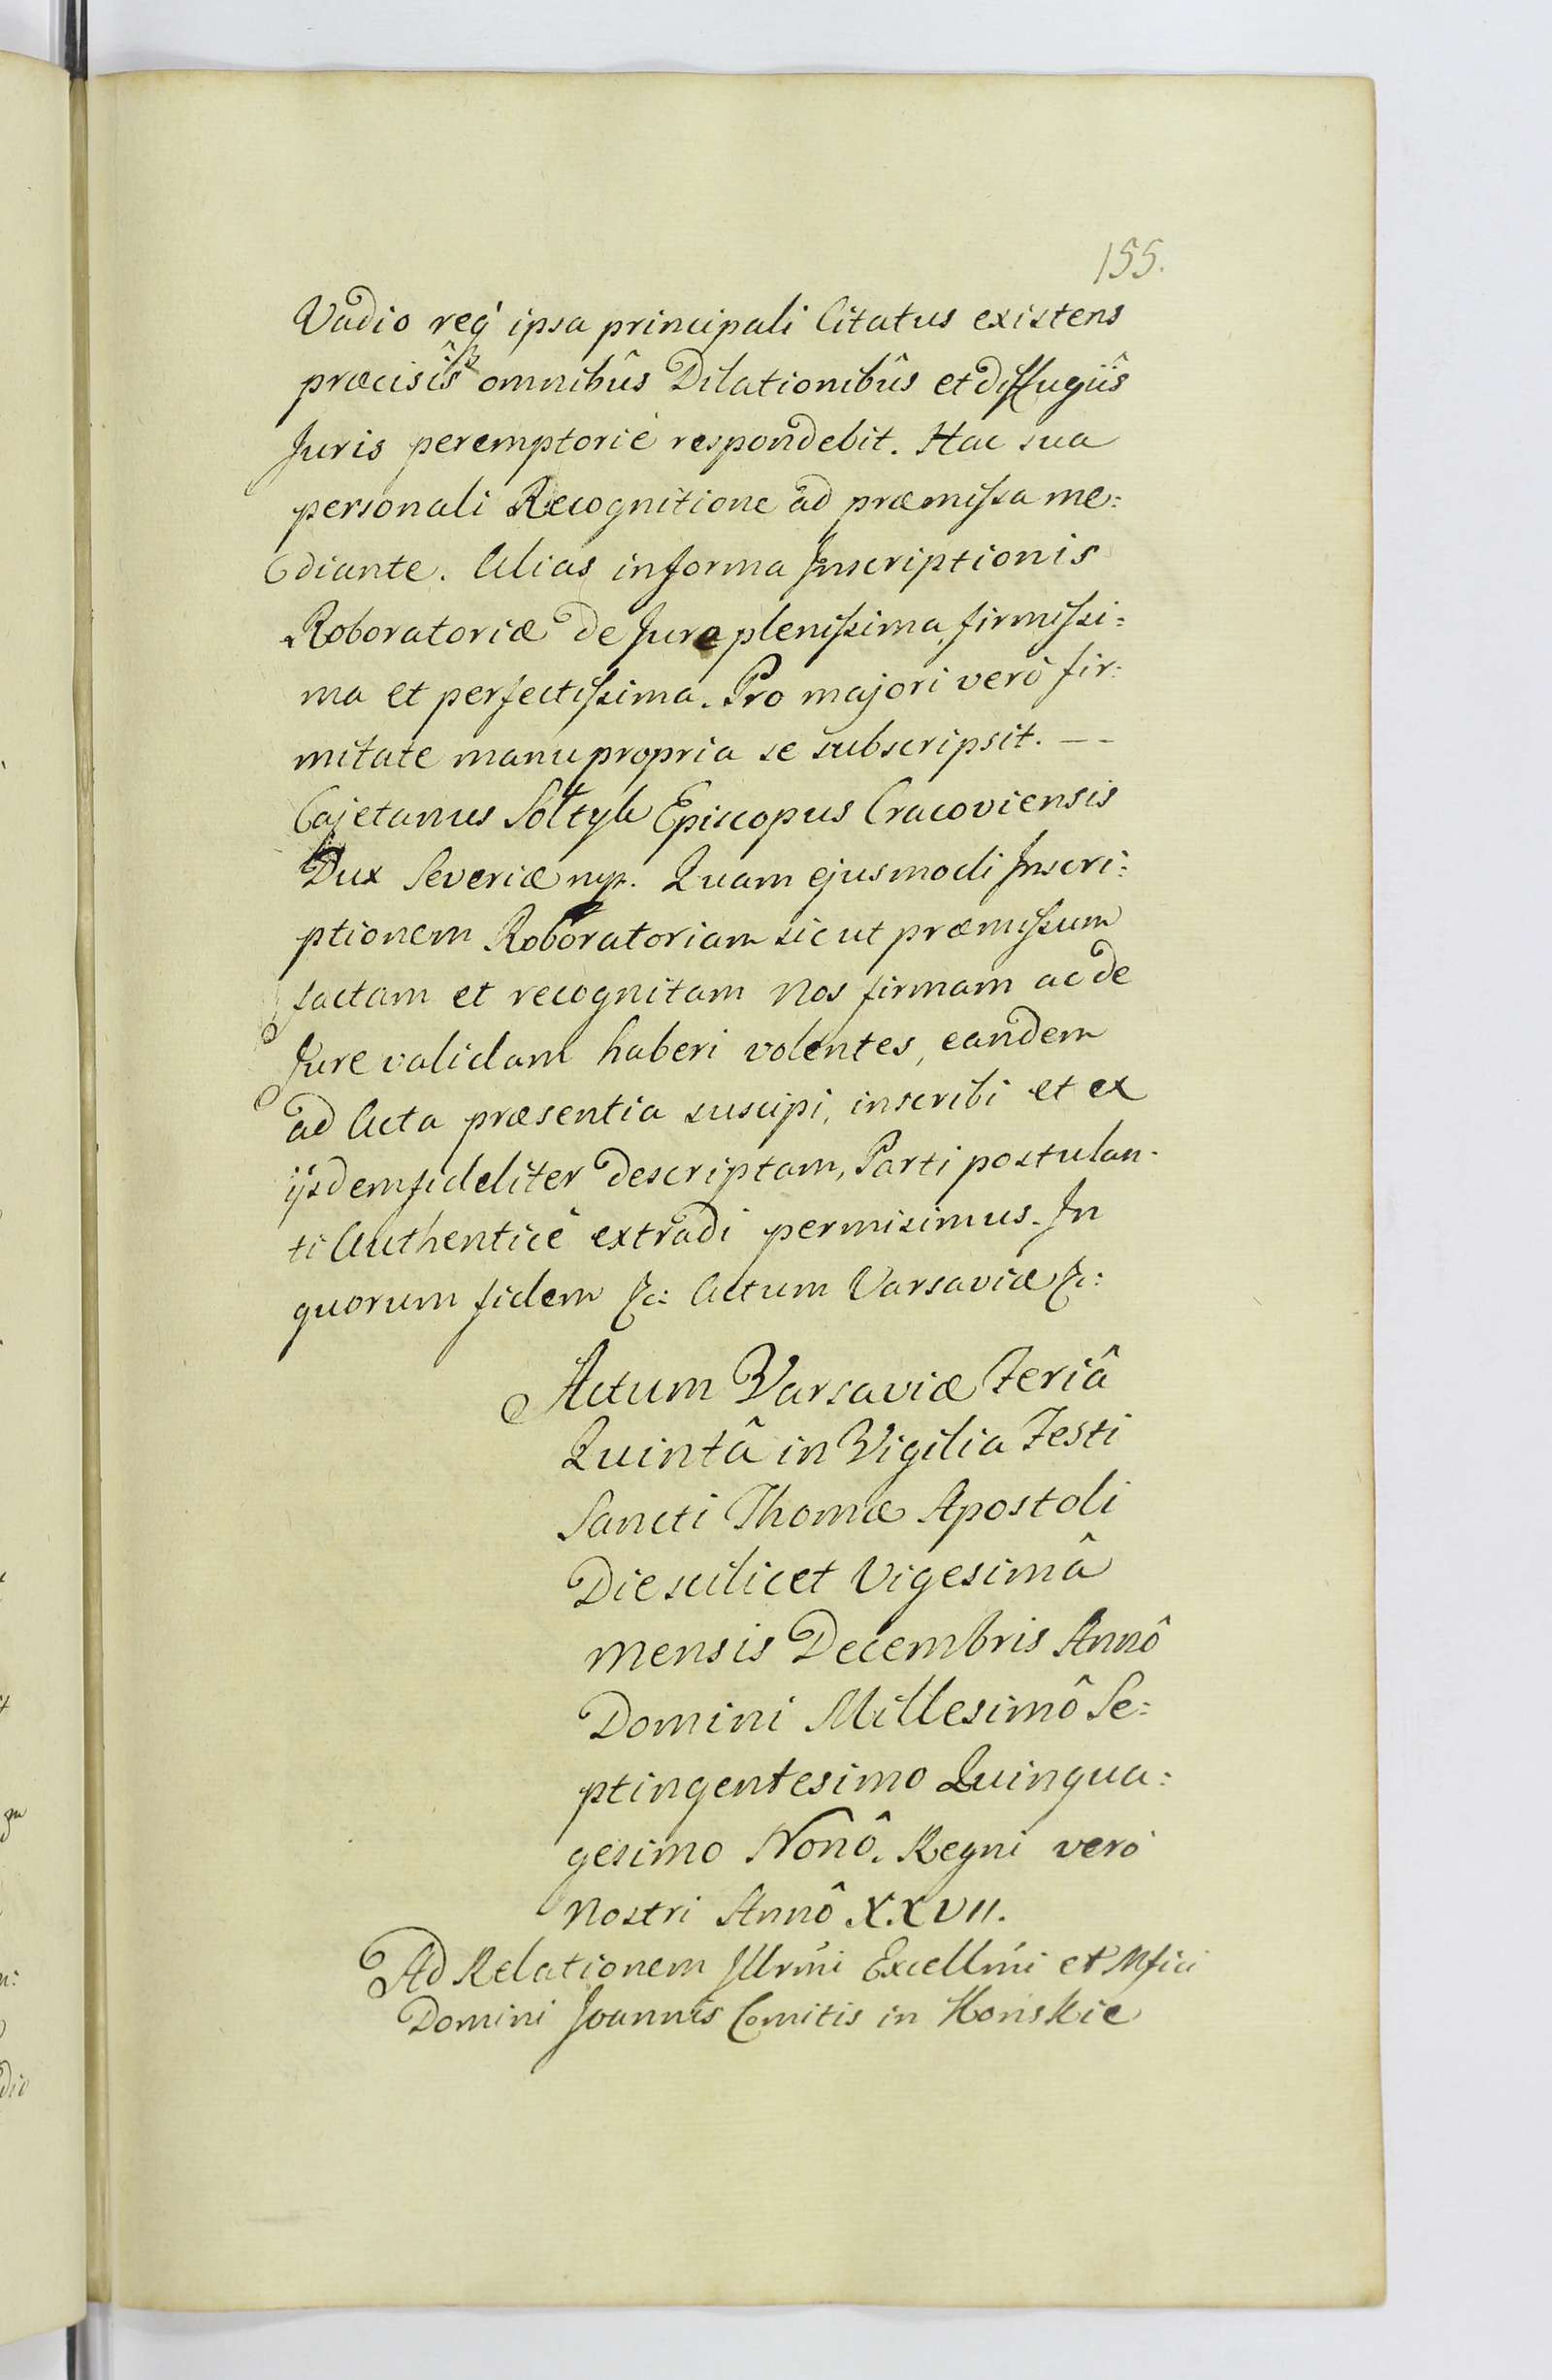 155.
Vadio req̀ ipsa principali Citatus existens
præcisîs omnibûs Dilationibûs et diffugiîs
Juris peremptoriè respondebit. Hac sua
personali Recognitione ad præmissa me:
diante. Alias in forma Inscriptionis
Roboratoriæ de Jure plenissima, firmissi:
ma et perfectissima. Pro majori verò fir:
mitate manu propria se subscripsit. —
Cajetanus Sołtyk Episcopus Cracoviensis
Dux Severiæ mp. Quam ejusmodi Inscri:
ptionem Roboratoriam sic ut præmissum
factam et recognitam Nos firmam ac de
Jure validam haberi volentes, eandem
ad Acta præsentia suscipi, inscribi et ex
ijsdem fideliter descriptam, Parti postulan-
ti Authenticè extradi permisimus. In
quorum fidem &c: Actum Varsaviæ &c:
Actum Varsaviæ Feriâ
Quintâ in Vigilia Festi
Sancti Thomæ Apostoli
Die scilicet Vigesimâ
mensis Decembris Annô
Domini Millesimô Se:
ptingentesimo Quinqua:
gesimo Nonô. Regni verò
Nostri Annô X.XVII.
Ad Relationem Illrmi Excellmi et Mfici
Domini Joannis Comitis in Konskie